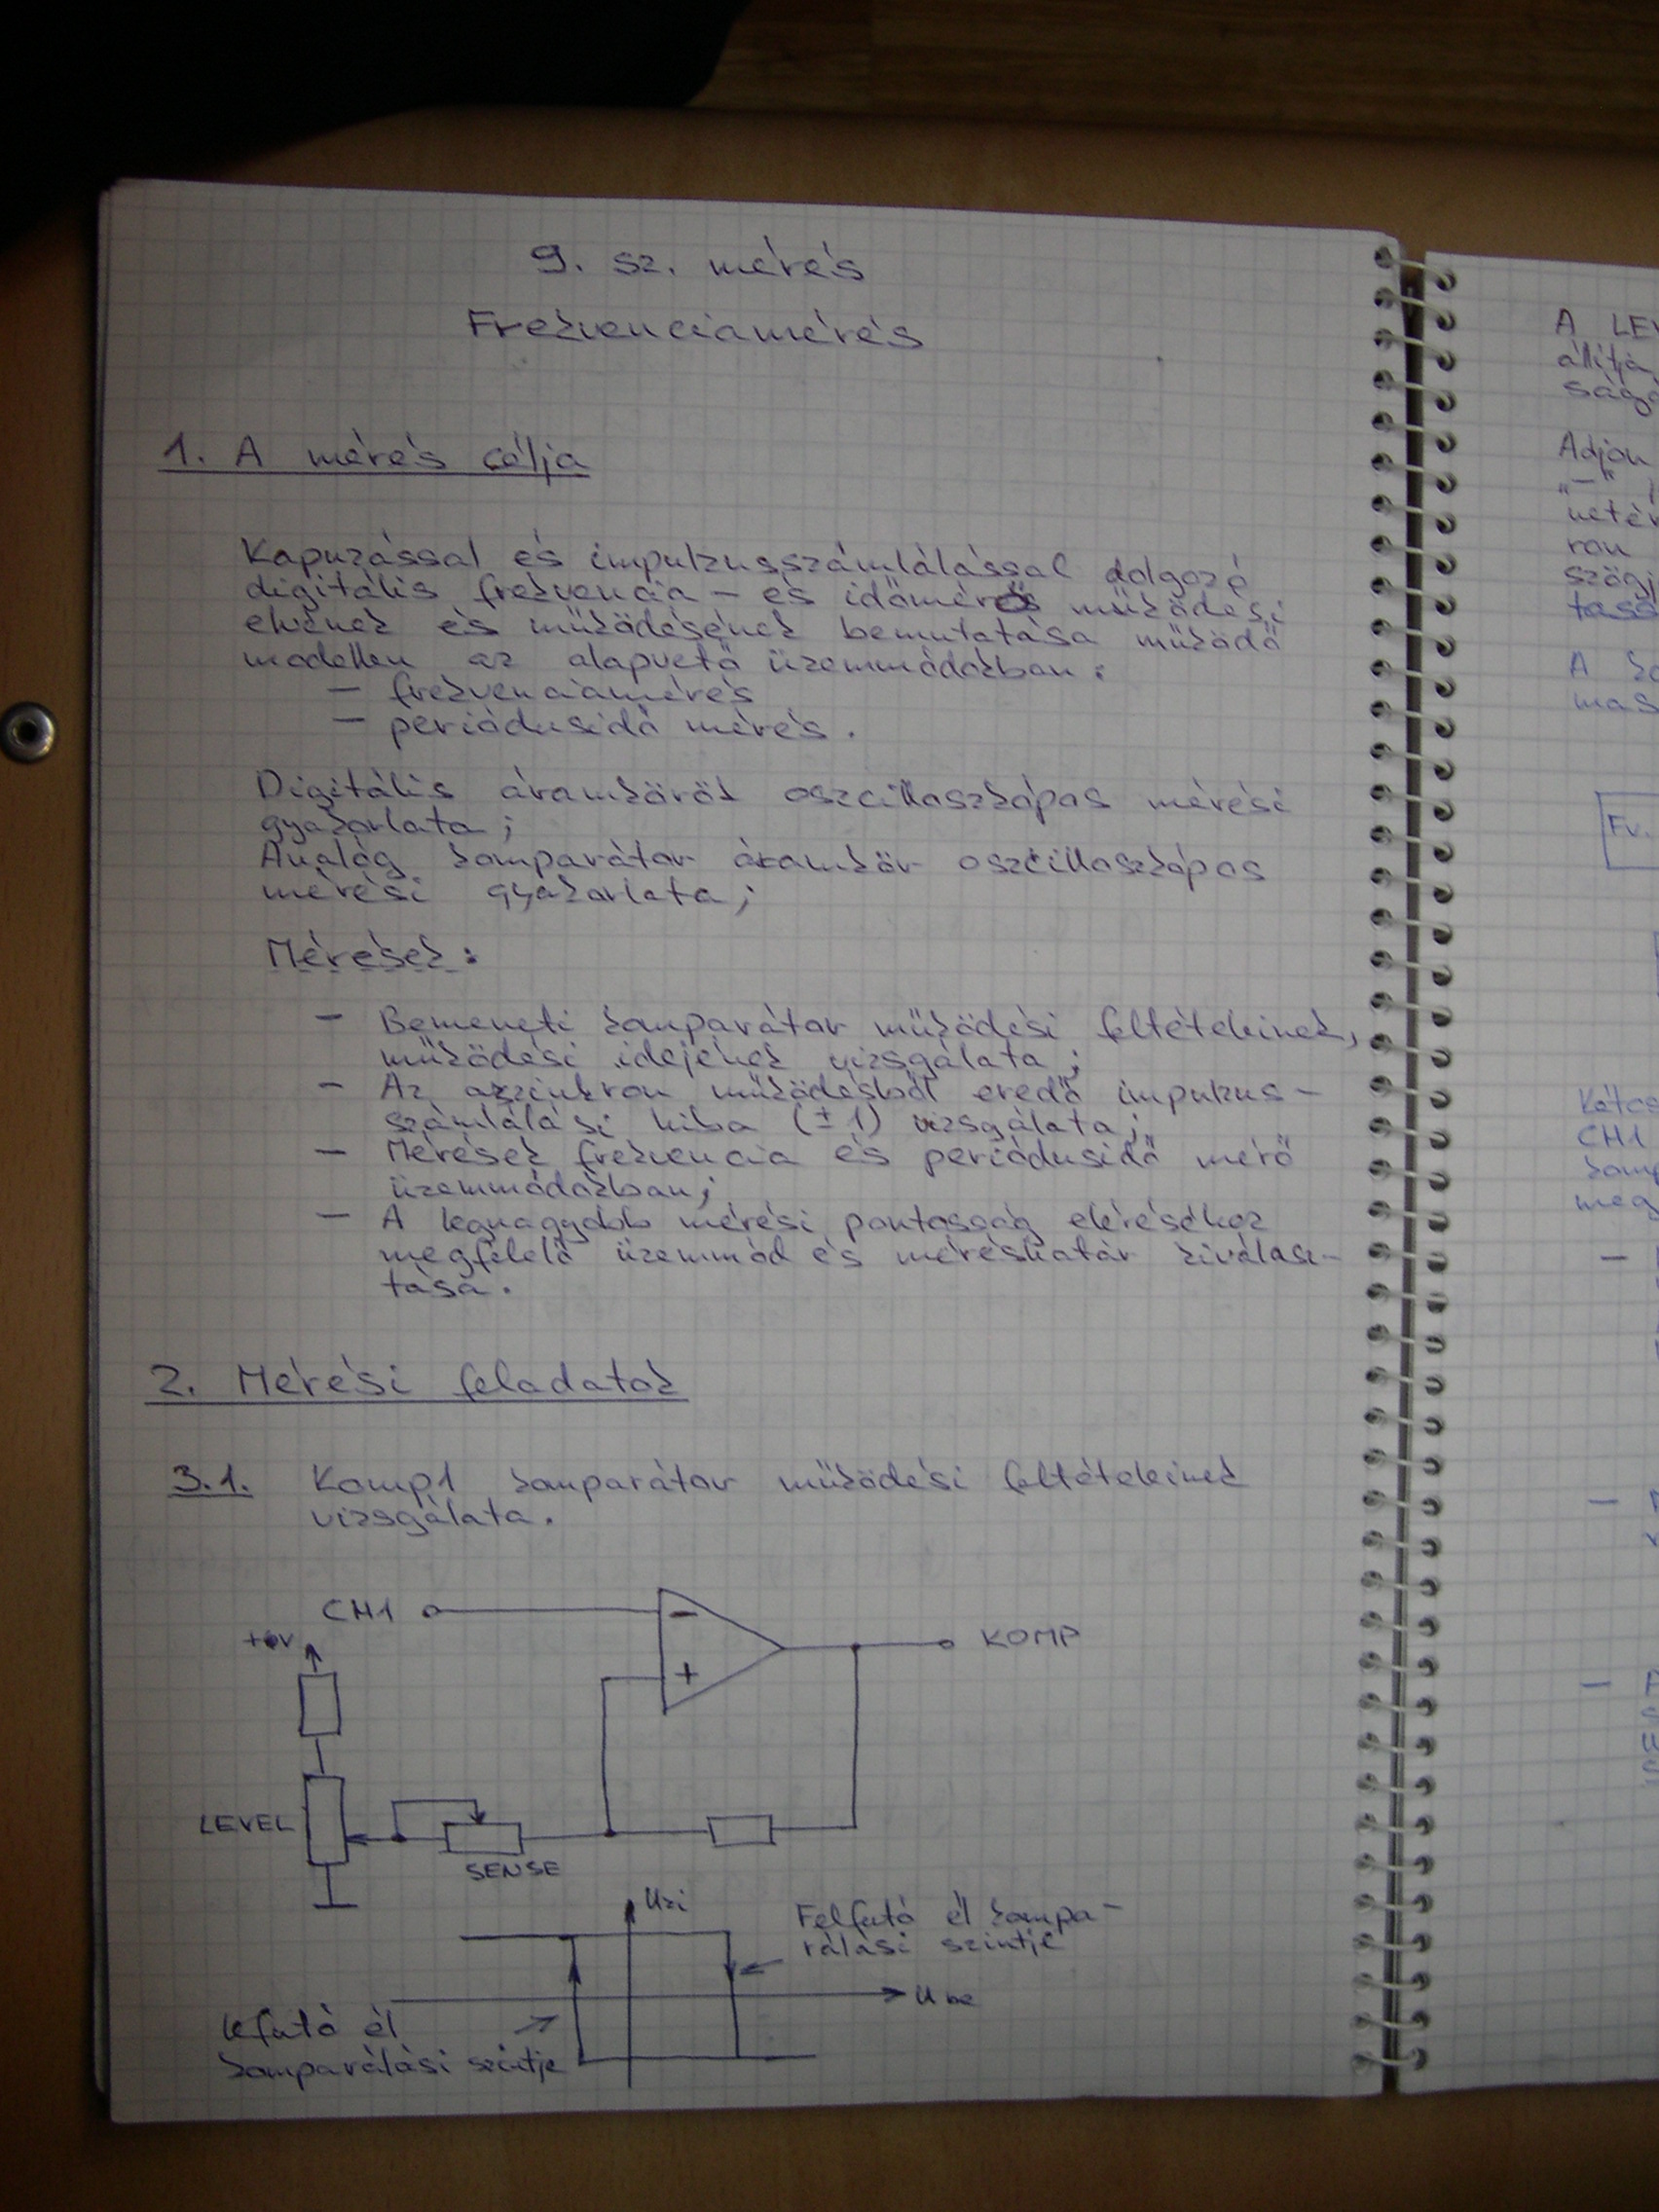 9. sz. mérés
Frekvenciamérés
1. A mérés célja
Kapuzással és impulzusszámlálással dolgozó
digitális frekvencia - és időmérés működési
elvének és működésének bemutatása működő
modellen az alapvető üzemmódokban:
- frekvenciamérés
- periódusidő mérés.
Digitális áramkörök oszcilloszkópos mérési
gyakorlata;
Analóg komparátor áramkör oszcilloszkópos
mérési gyakorlata;
Mérések:
- Bemeneti komparátor működési feltételeinek,
működési idejének vizsgálata;
- Az aszinkron működésből eredő impulzus-
számlálási hiba (±1) vizsgálata;
- Mérések frekvencia és periódusidő mérő
üzemmódokban;
- A legnagyobb mérési pontosság eléréséhez
megfelelő üzemmód és méréshatár kiválasz-
tása.
2. Mérési feladatok
3.1. Komp1 komparátor működési feltételeinek
vizsgálata.
CH1
-
+
KOMP
LEVEL
SENSE
Uki
Felfutó él kompa-
rálási szintje
Ube
lefutó él
komparálási szintje
A LE
állítja
Adjon
ron
A
mas
Fv.
CH1
meg